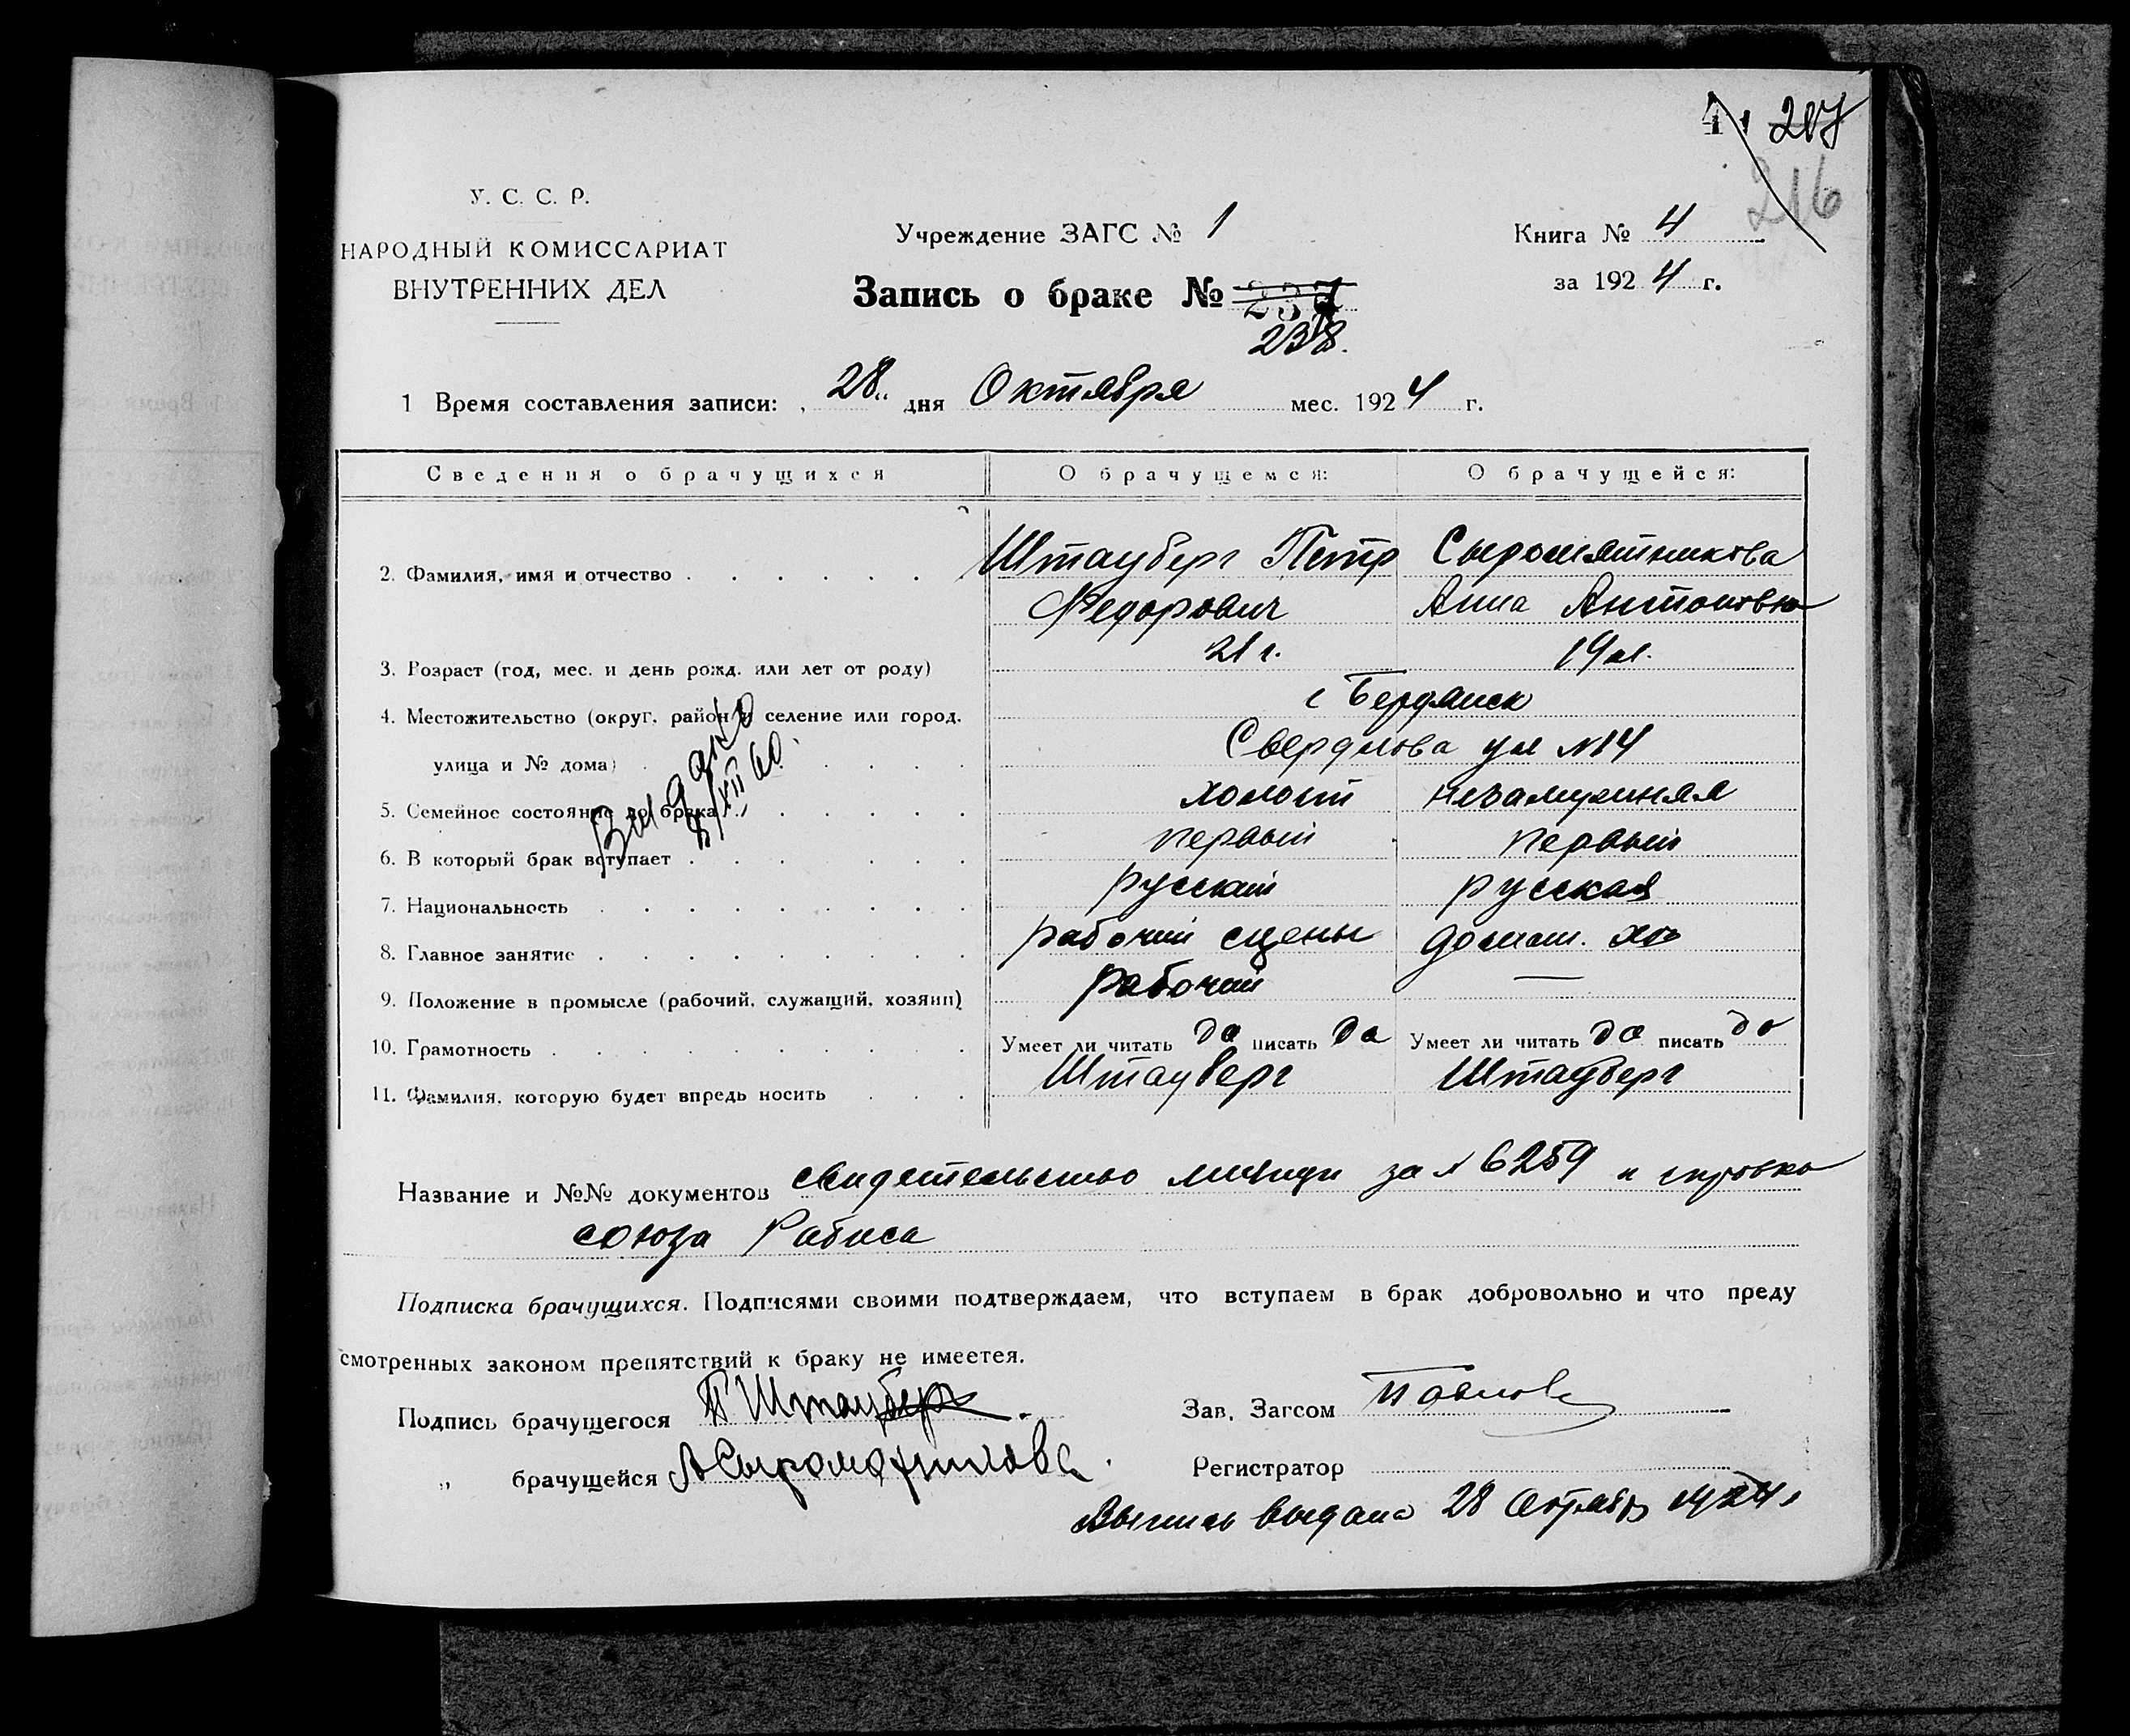 4 207
216
У. С. С. Р.
НАРОДНЫЙ КОМИССАРИАТ
ВНУТРЕННИХ ДЕЛ
Учреждение ЗАГС № 1
Книга № 4
за 1924 г.
Запись о браке № 237
238.
1 Время составления записи: 28 дня Октября мес. 1924 г.
Сведения о брачущихся О брачущемся: О брачущейся:
2. Фамилия, имя и отчество Штауберг Петр Сыромятникова
Федорович Анна Антоновна
3. Возраст (год, мес. и день рожд. или лет от роду) 21 г. 19 л.
4. Местожительство (округ, район и селение или город, г Бердянск
улица и № дома) Свердлова ул №14
5. Семейное состояние до брака холост незамужняя
6. В который брак вступает первый первый
7. Национальность русский русская
8. Главное занятие рабочий сцены домаш. хоз
9. Положение в промысле (рабочий, служащий, хозяин) рабочий —
10. Грамотность Умеет ли читать да писать да Умеет ли читать да писать да
11. Фамилия, которую будет впредь носить Штауберг Штауберг
XII 60
Название и №№ документов свидетельство милиции за № 6259 и
союза Рабиса
Подписка брачущихся. Подписями своими подтверждаем, что вступаем в брак добровольно и что преду
смотренных законом препятствий к браку не имеется.
Подпись брачущегося П Штауберг
Зав. Загсом Павлов
„ брачущейся А Сыромятникова
Регистратор
Выпись выдана 28 Октября 1924 г